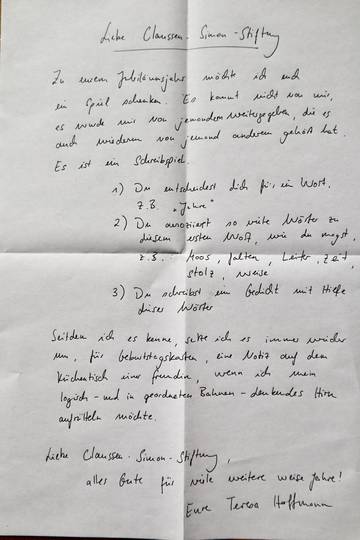 Liebe Claussen-Simon-Stiftung
Zu eurem Jubiläumsjahr möchte ich euch
ein Spiel schenken. Es kommt nicht von mir,
es wurde mir von jemandem weitergegeben, die es
auch wiederum von jemand anderem gehört hat.
Es ist ein Schreibspiel.
1) Du entscheidest dich für ein Wort,
z.B. „Jahre"
2) Du assoziierst so viele Wörter zu
diesem ersten Wort, wie du magst,
z.B. Moos, falten, Leiter, Zeit,
stolz, weise
3) Du schreibst ein Gedicht mit Hilfe
dieser Wörter
Seitdem ich es kenne, setze ich es immer wieder
um, für Geburtstagskarten, eine Notiz auf dem
Küchentisch einer Freundin, wenn ich mein
logisch - und in geordneten Bahnen - denkendes Hirn
aufrütteln möchte.
Liebe Claussen-Simon-Stiftung,
alles Gute für viele weitere weise Jahre!
Eure Teresa Hoffmann